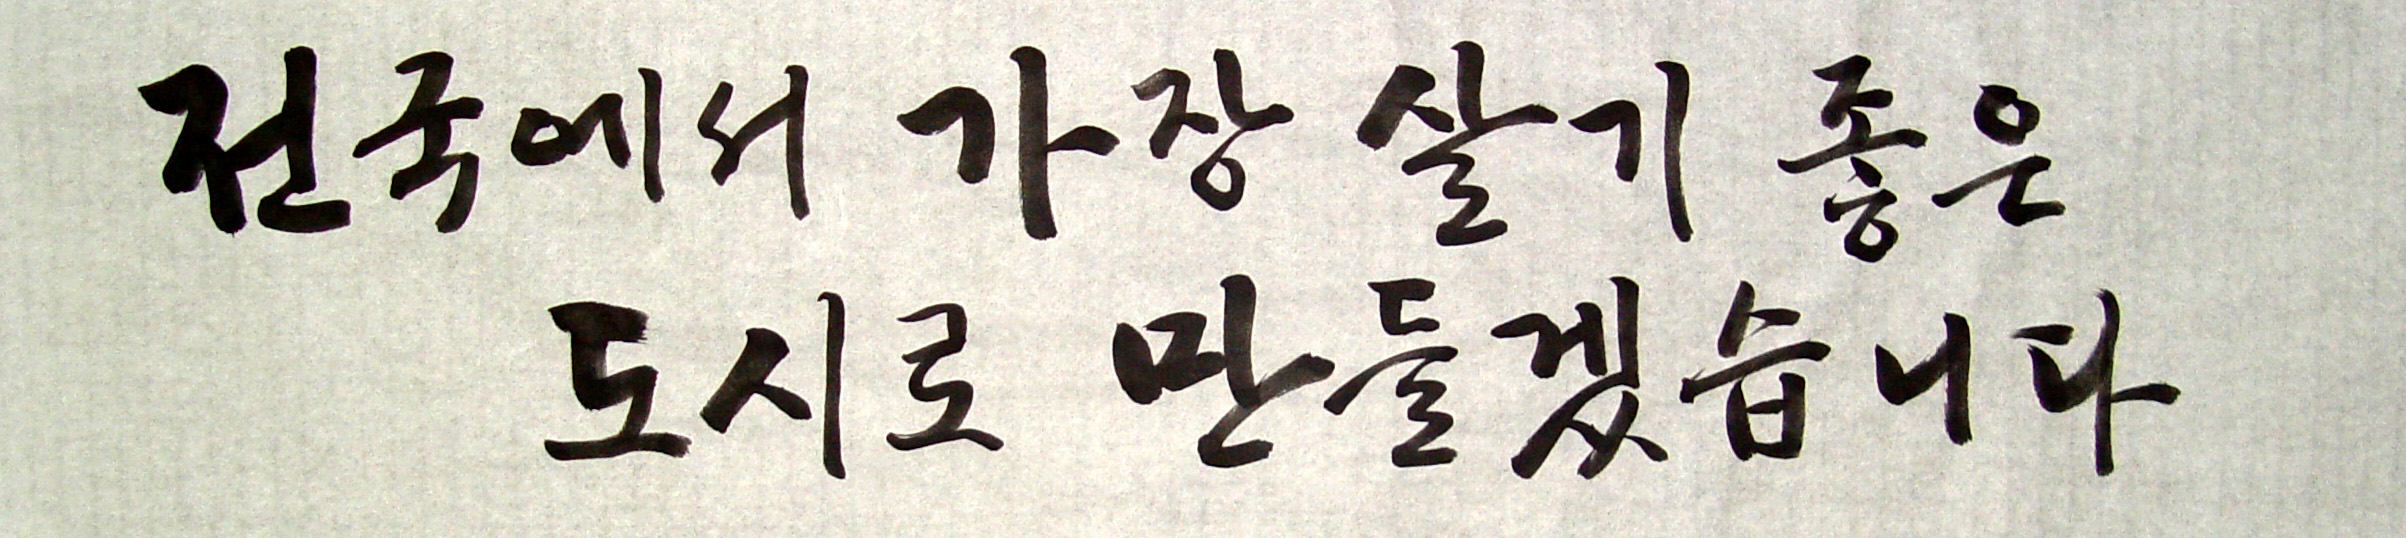 전국에서 가장 살기 좋은
도시로 만들겠습니다